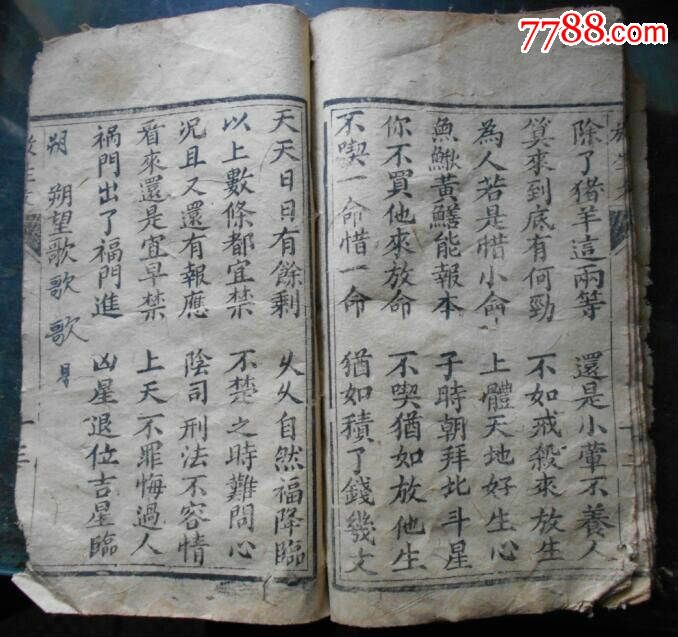 7788.com
除了猪羊這兩等 還是小葷不養人
算來到底有何勁 不如戒殺來放生
為人若是惜小命 上體天地好生心
魚鰍黃鱔能報本 子時朝拜北斗星
你不買他來放命 不喫猶如放他生
不喫一命惜一命 猶如積了錢幾文
天天日日有餘剩 久久自然福降臨
以上數條都宜禁 不楚之時難問心
況且又還有報應 陰司刑法不容情
看來還是宜早禁 上天不罪悔過人
禍門出了福門進 凶星退位吉星臨
朔 朔望歌歌 歌
十三